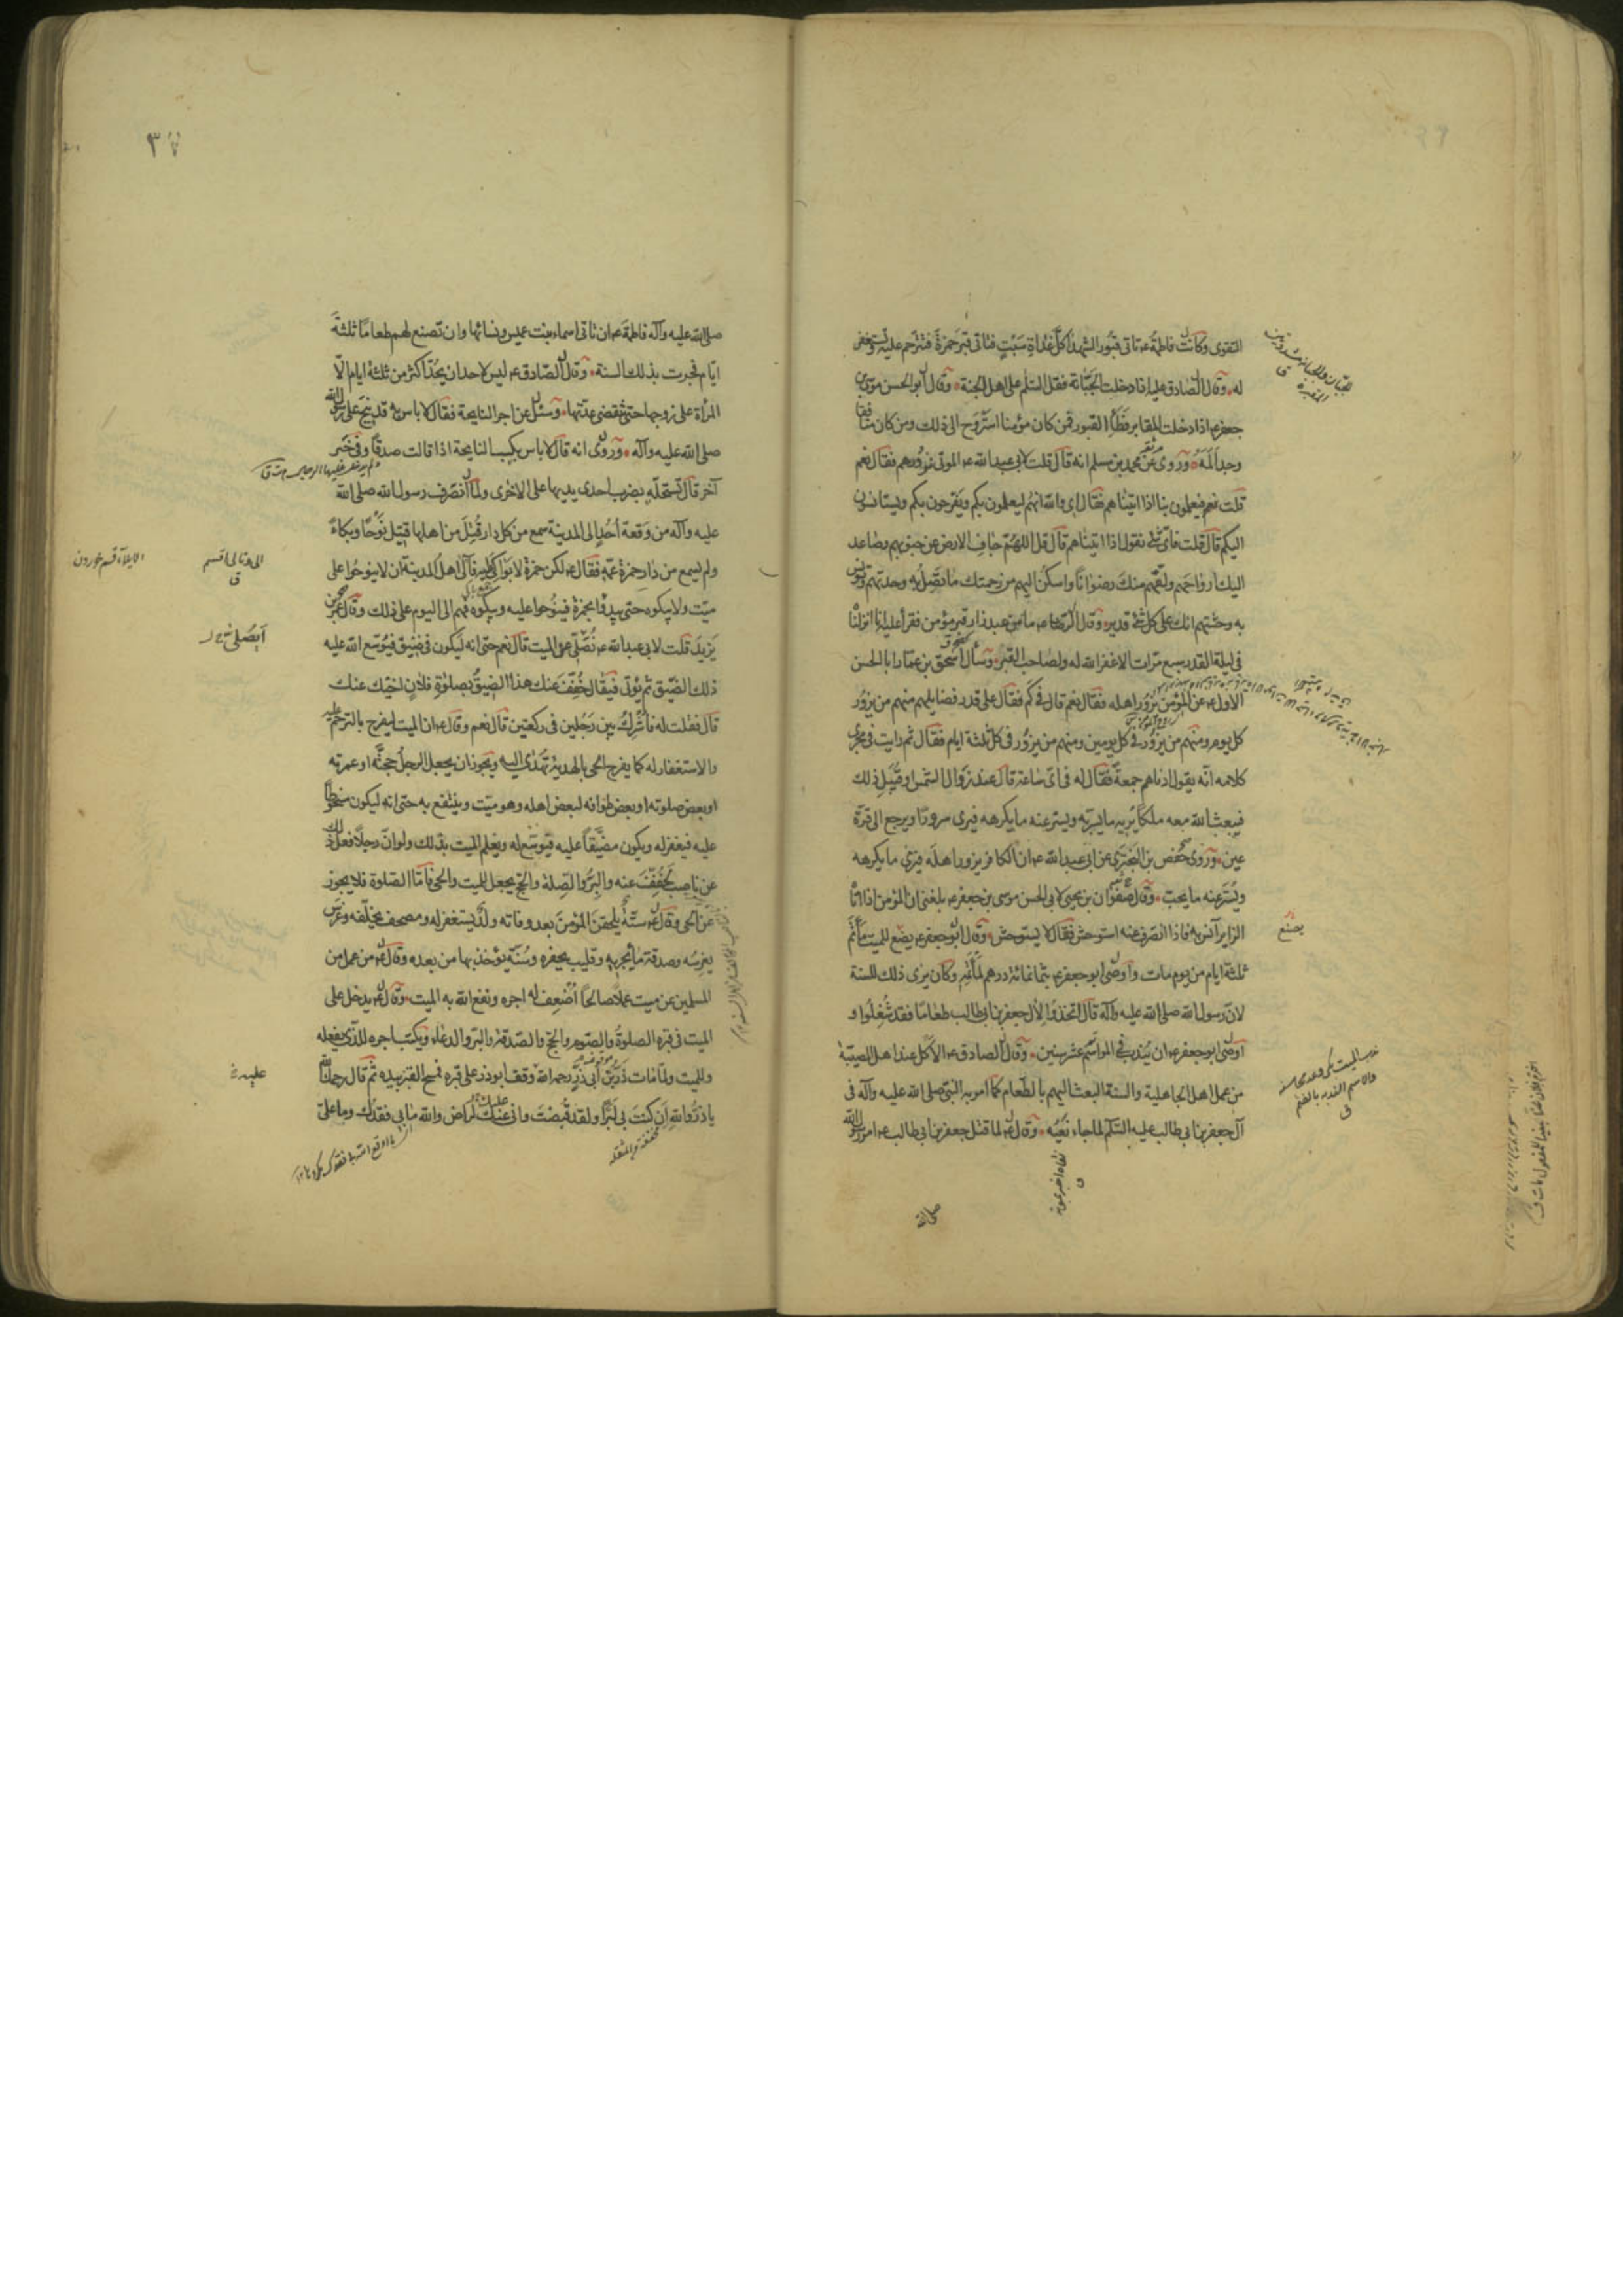 التقوى وكانت فاطمة ع تاتى قبور الشهداء كل غداة سبت فتاتى قبر حمزة فتترحم عليه وتستغفر
له وقال الصادق عليه اذا دخلت الجبانة فقل السلم على اهل الجنة وقال ابو الحسن موسى بن
جعفر ع اذا دخلت المقابر فطأ القبور فمن كان مؤمنا استروح الى ذلك ومن كان منافقا
وجد ألمه وروى عن محمد بن مسلم انه قال قلت لابى عبد الله ع الموتى نزورهم فقال نعم
قلت فيعلمون بنا اذا اتيناهم فقال اى والله انهم ليعلمون بكم ويفرحون بكم ويستانسون
اليكم قال قلت فاى شئ نقول اذا اتيناهم قال قل اللهم جاف الارض عن جنوبهم وصاعد
اليك ارواحهم ولقهم منك رضوانا واسكن اليهم من رحمتك ما تصل به وحدتهم وتونس
به وحشتهم انك على كل شئ قدير وقال الرضا ع ما من عبد زار قبر مؤمن فقرأ عليه انا انزلناه
فى ليلة القدر سبع مرات الا غفر الله له ولصاحب القبر وسأل اسحق بن عمار ابا الحسن
الاول ع عن المؤمن يزور اهله فقال نعم قال فى كم فقال على قدر فضايلهم منهم من يزور
كل يوم ومنهم من يزور فى كل يومين ومنهم من يزور فى كل ثلثة ايام فقال ثم رايت فى مجرى
كلامه انه يقول ادناهم جمعة فقال له فى اى ساعة قال عند زوال الشمس او قبيل ذلك
فيبعث الله معه ملكا يريه ما يسر به ويستر عنه ما يكرهه فيرى سرورا ويرجع الى قرة
عين وروى حفص بن البخترى عن ابى عبد الله ع ان الكافر يزور اهله فيرى ما يكرهه
ويستر عنه ما يحب وقال صفوان بن يحيى لابى الحسن موسى بن جعفر ع بلغنى ان المؤمن اذا اتاه
الزاير آنس به فاذا انصرف عنه استوحش فقال لا يستوحش وقال ابو جعفر ع يضع للميت مأتم
يصنع
ثلثة ايام من يوم مات واوصى ابو جعفر ع بثمانمائة درهم لمأتمه وكان يرى ذلك للسنة
لان رسول الله صلى الله عليه وآله قال اتخذوا لآل جعفر بن ابى طالب طعاما فقد شغلوا و
اوصى ابو جعفر ع ان يندب فى المواسم عشر سنين وقال الصادق ع الاكل عند اهل المصيبة
من عمل اهل الجاهلية والسنة البعث اليهم بالطعام كما امر به النبى صلى الله عليه وآله فى
آل جعفر بن ابى طالب عليه السلم لما جاء نعيه وقال ع لما قتل جعفر بن ابى طالب ع امر رسول الله
صلى الله
٣٧
صلى الله عليه وآله فاطمة ع ان تاتى اسماء بنت عميس ونسائها وان تصنع لهم طعاما ثلثة
ايام فجرت بذلك السنة وقال الصادق ع ليس لاحد ان يحد اكثر من ثلثة ايام الا
المرأة على زوجها حتى تقضى عدتها وسئل عن اجر النايحة فقال لا باس به قد نيح على رسول الله
صلى الله عليه وآله وروى انه قال لا باس بكسب النايحة اذا قالت صدقا وفى خبر
آخر قال تستحله بضرب احدى يديها على الاخرى ولما انصرف رسول الله صلى الله
عليه وآله من وقعة احد الى المدينة سمع من كل دار قتل من اهلها قتيل نوحا وبكاء
ولم يسمع من دار حمزة عمه فقال ع لكن حمزة لا بواكى له فآلى اهل المدينة ان لا ينوحوا على
ميت ولا يبكوه حتى يبدؤا بحمزة فينوحوا عليه ويبكوه فهم الى اليوم على ذلك وقال عمر بن
يزيد قلت لابى عبد الله ع نصلى عن الميت قال نعم حتى انه ليكون فى ضيق فيوسع الله عليه
ذلك الضيق ثم يؤتى فيقال خفف عنك هذا الضيق بصلوة فلان اخيك عنك
قال فقلت له فاشرك بين رجلين فى ركعتين قال نعم وقال ع ان الميت ليفرح بالترحم عليه
والاستغفار له كما يفرح الحى بالهدية تهدى اليه ويجوز ان يجعل الرجل حجته او عمرته
او بعض صلوته او بعض طوافه لبعض اهله وهو ميت وينتفع به حتى انه ليكون مسخوطا
عليه فيغفر له ويكون مضيقا عليه فيوسع له ويعلم الميت بذلك ولو ان رجلا فعل ذلك
عن ناصب لخفف عنه والبر والصلة والحج يجعل للميت والحى فاما الصلوة فلا يجوز
عن الحى وقال ع ستة يلحقن المؤمن بعد وفاته ولد يستغفر له ومصحف يخلفه وغرس
يغرسه وصدقة ماء يجريه وقليب يحفره وسنة يؤخذ بها من بعده وقال ع من عمل من
المسلمين عن ميت عملا صالحا اضعف له اجره ونفع الله به الميت وقال ع يدخل على
الميت فى قبره الصلوة والصوم والحج والصدقة والبر والدعاء ويكتب اجره للذى يفعله
وللميت ولما مات ذر بن ابى ذر رحمه الله وقف ابوذر على قبره فمسح القبر بيده ثم قال رحمك الله
يا ذر والله ان كنت بى لبرا ولقد قبضت وانى عنك لراض والله ما بى فقدك وما على
الايلاء قسم خوردن